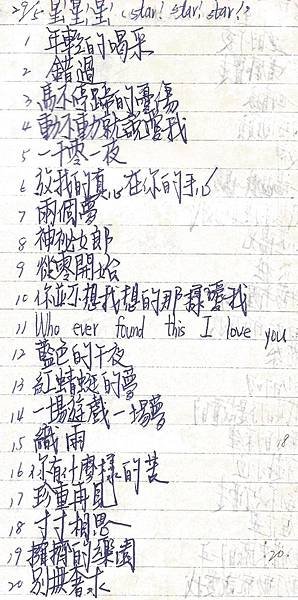 29/5 星!星!星! (star! star! star!)
1 年輕的喝采
2 錯過
3 馬不停蹄的憂傷
4 動不動就說愛我
5 一千零一夜
6 放我的真心在你的手心
7 兩個夢
8 神祕女郎
9 從零開始
10 你並不想我想的那樣愛我
11 Who ever found this I love you
12 藍色的午夜
13 紅蜻蜓的夢
14 一場遊戲一場夢
15 織雨
16 你有什麼樣的苦
17 珍重再見
18 寸寸相思
19 擁擠的樂園
20 別無奢求